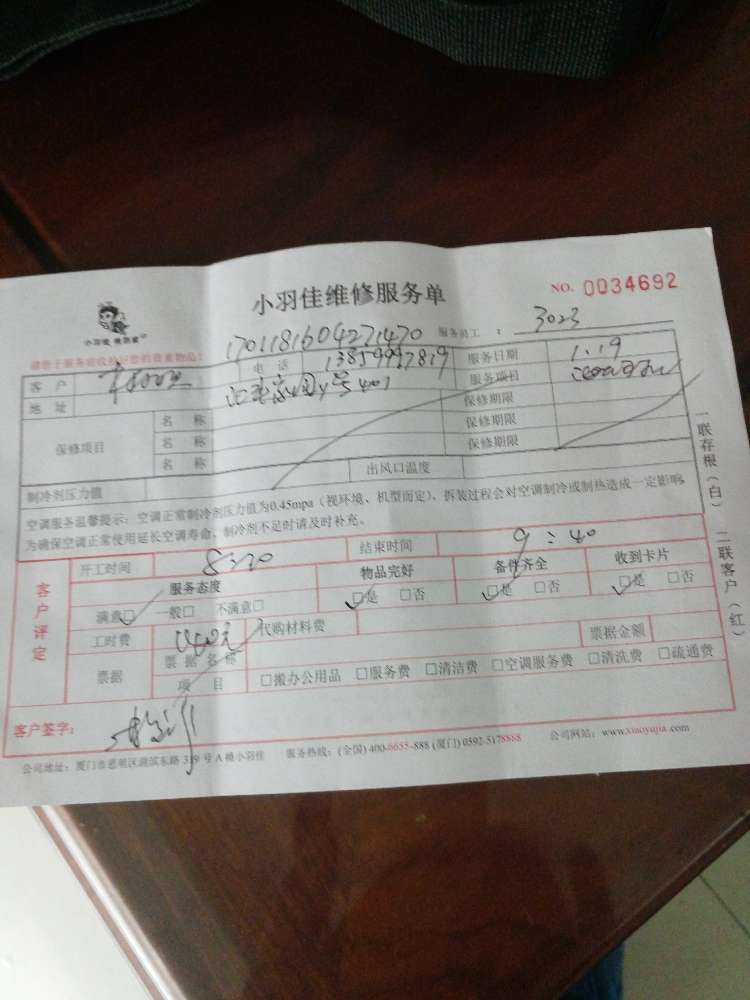 小羽佳维修服务单
NO. 0034692
小羽佳 做到家
请您于服务前收拾好您的贵重物品：
1701181604271470
服务员工 : 3023
客户 电话 13859997819 服务日期 1.19
地址 服务项目
保修项目 名称 保修期限
名称 保修期限
名称 保修期限
制冷剂压力值 出风口温度
空调服务温馨提示：空调正常制冷剂压力值为0.45mpa（视环境、机型而定），拆装过程会对空调制冷或制热造成一定影响，
为确保空调正常使用延长空调寿命，制冷剂不足时请及时补充。
一联存根（白） 二联客户（红）
客户评定
开工时间 8:20 结束时间 9:40
服务态度 物品完好 备件齐全 收到卡片
满意□ 一般□ 不满意□ □是 □否 □是 □否 □是 □否
工时费 代购材料费 票据金额
票据 票据名称
项目 □搬办公用品 □服务费 □清洁费 □空调服务费 □清洗费 □疏通费
客户签字：
公司地址：厦门市思明区湖滨东路 319 号 A 楼小羽佳 服务热线：(全国) 400-6655-888 (厦门) 0592-5178868 公司网站：www.xiaoyujia.com